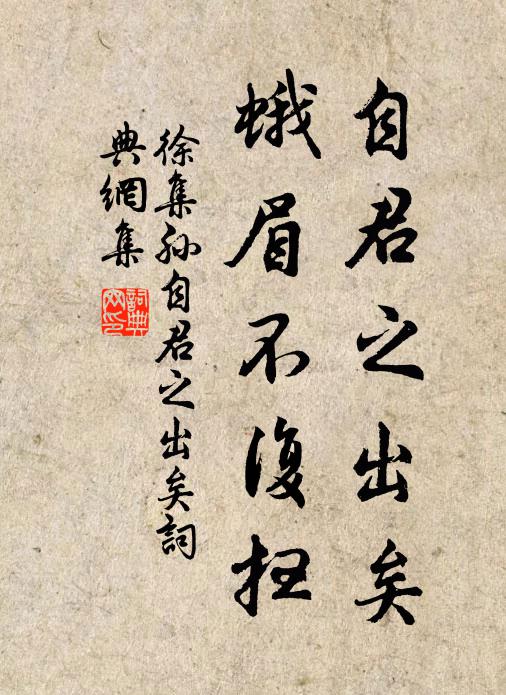 自君之出矣
蛾眉不復扫
徐集孙自君之出矣詞
典網集
詞典
网印